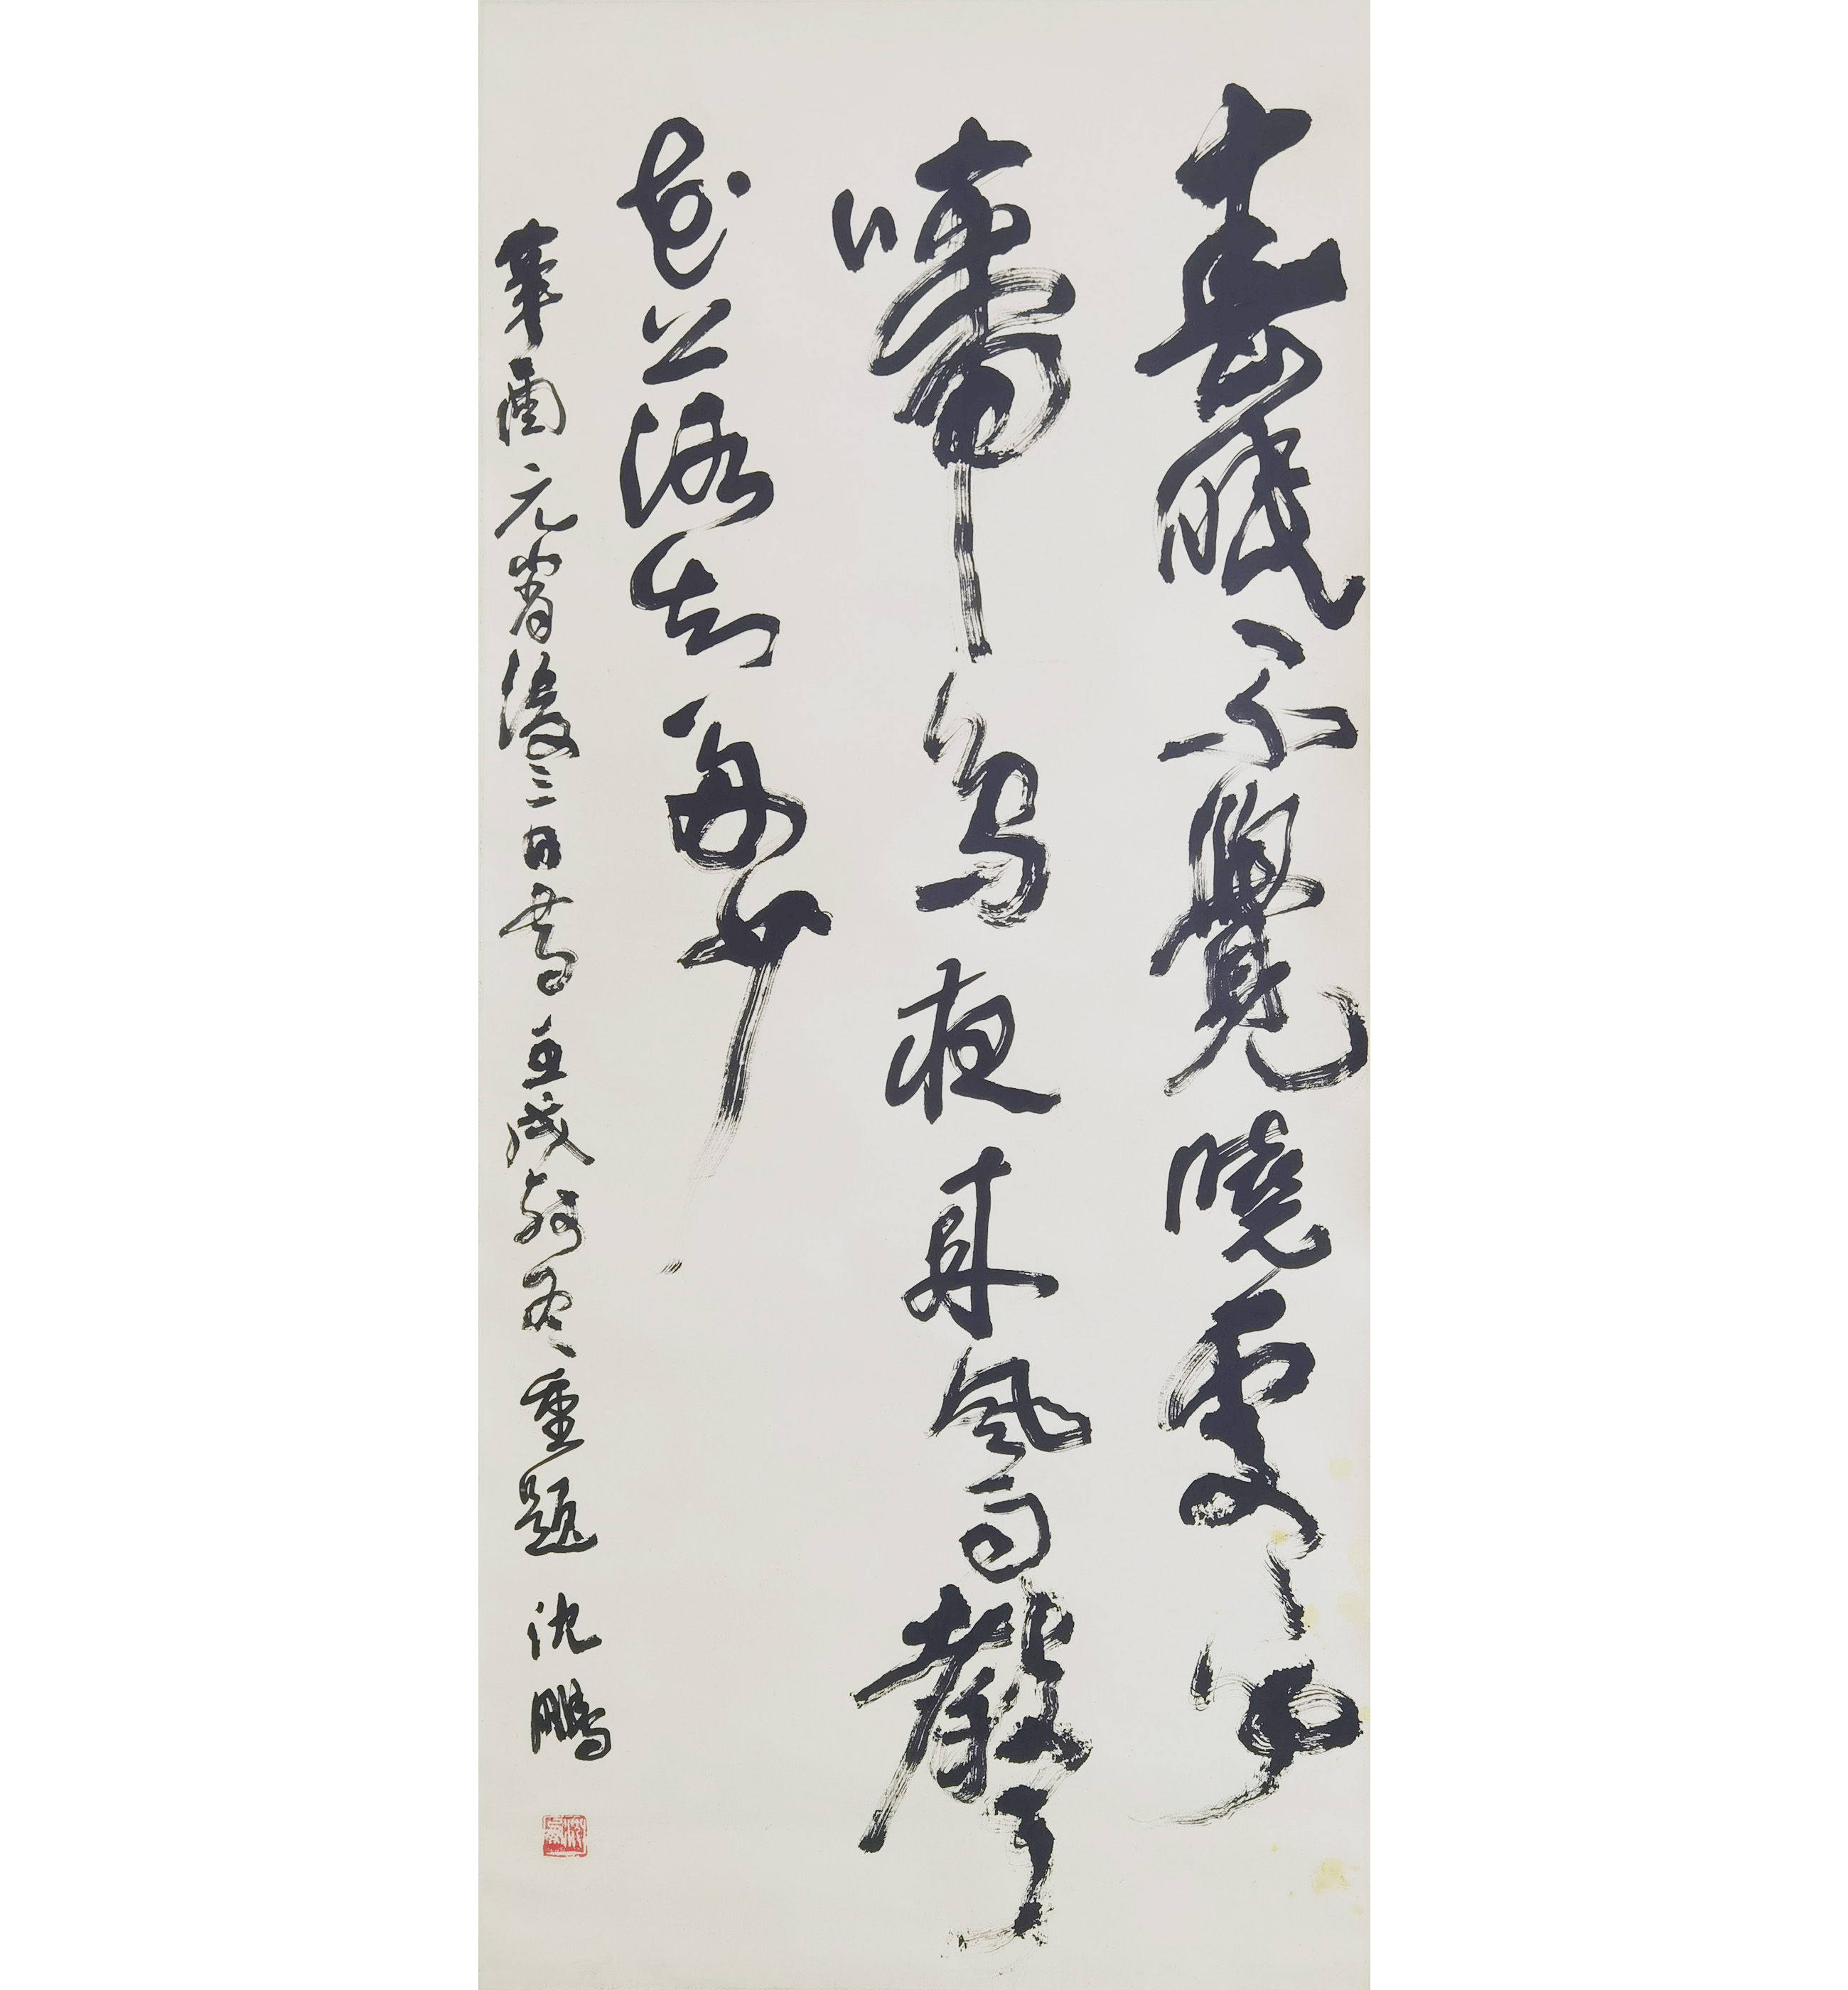 春眠不覺曉處々聞
啼鳥夜來風雨聲
花落知多少
辛酉元宵後三日書壬戌初冬重題 沈鵬